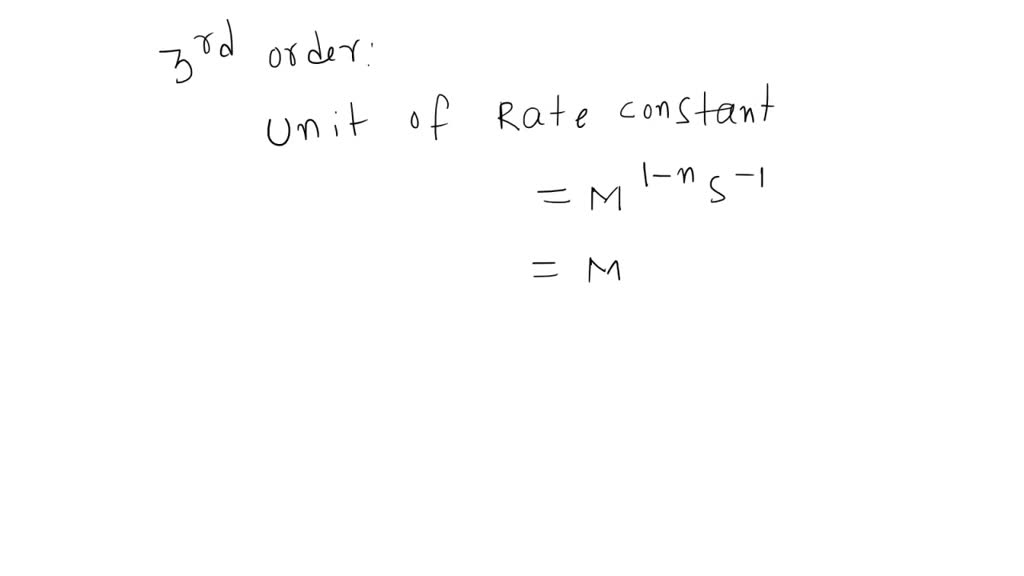 3rd order:
Unit of Rate constant
= M^1-n s^-1
= M